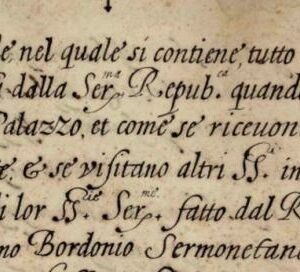 e, nel quale si contiene tutto
dalla Ser.ma Repub.ca quand
Palazzo, et come se riceuon
e, & se visitano altri SS.ri in
i lor SS.rie Ser.me fatto dal R
no Bordonio Sermonetan